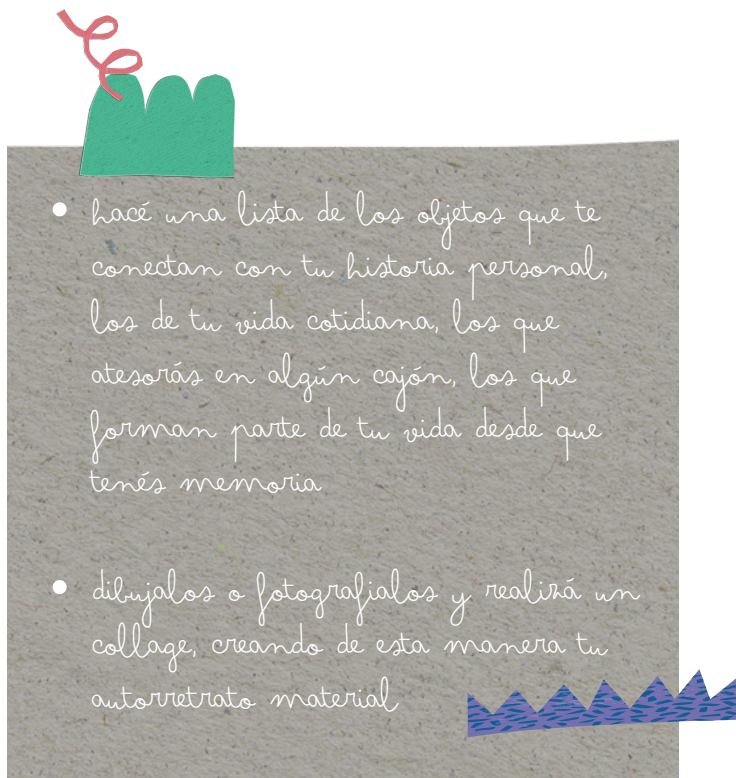 hacé una lista de los objetos que te
conectan con tu historia personal,
los de tu vida cotidiana, los que
atesorás en algún cajón, los que
forman parte de tu vida desde que
tenés memoria
dibujalos o fotografialos y realizá un
collage, creando de esta manera tu
autorretrato material